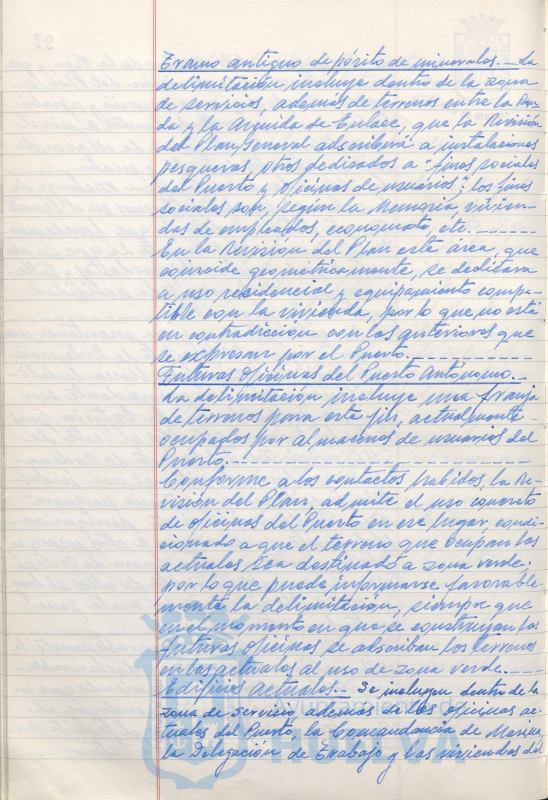 Tramo antiguo depósito de minerales.- La
delimitación incluye dentro de la zona
de servicios, además de terrenos entre la Ron-
da y la Avenida de Enlace, que la Revisión
del Plan General adscribirá a instalaciones
pesqueras, otros dedicados a "fines sociales
del Puerto y oficinas de usuarios"; los fines
sociales son, según la Memoria, vivien-
das de empleados, economato, etc.------
En la Revisión del Plan este área, que
coincide geométricamente, se dedicará
a uso residencial y equipamiento compa-
tible con la vivienda, por lo que no está
en contradicción con los anteriores que
se expresan por el Puerto.-----------
Futuras oficinas del Puerto Autónomo.-
La delimitación incluye una franja
de terrenos para este fin, actualmente
ocupados por almacenes de usuarios del
Puerto.-----------------------
Conforme a los contactos habidos, la Re-
visión del Plan, admite el uso concreto
de oficinas del Puerto en ese lugar, condi-
cionado a que el terreno que ocupan las
actuales sea destinado a zona verde;
por lo que puede informarse favorable-
mente la delimitación, siempre que
en el momento en que se construyan las
futuras oficinas se adscriban los terrenos
en las actuales al uso de zona verde.----
Edificios actuales.- Se incluyen dentro de la
zona de servicio, además de las oficinas ac-
tuales del Puerto, la Comandancia de Marina,
la Delegación de Trabajo y las viviendas del